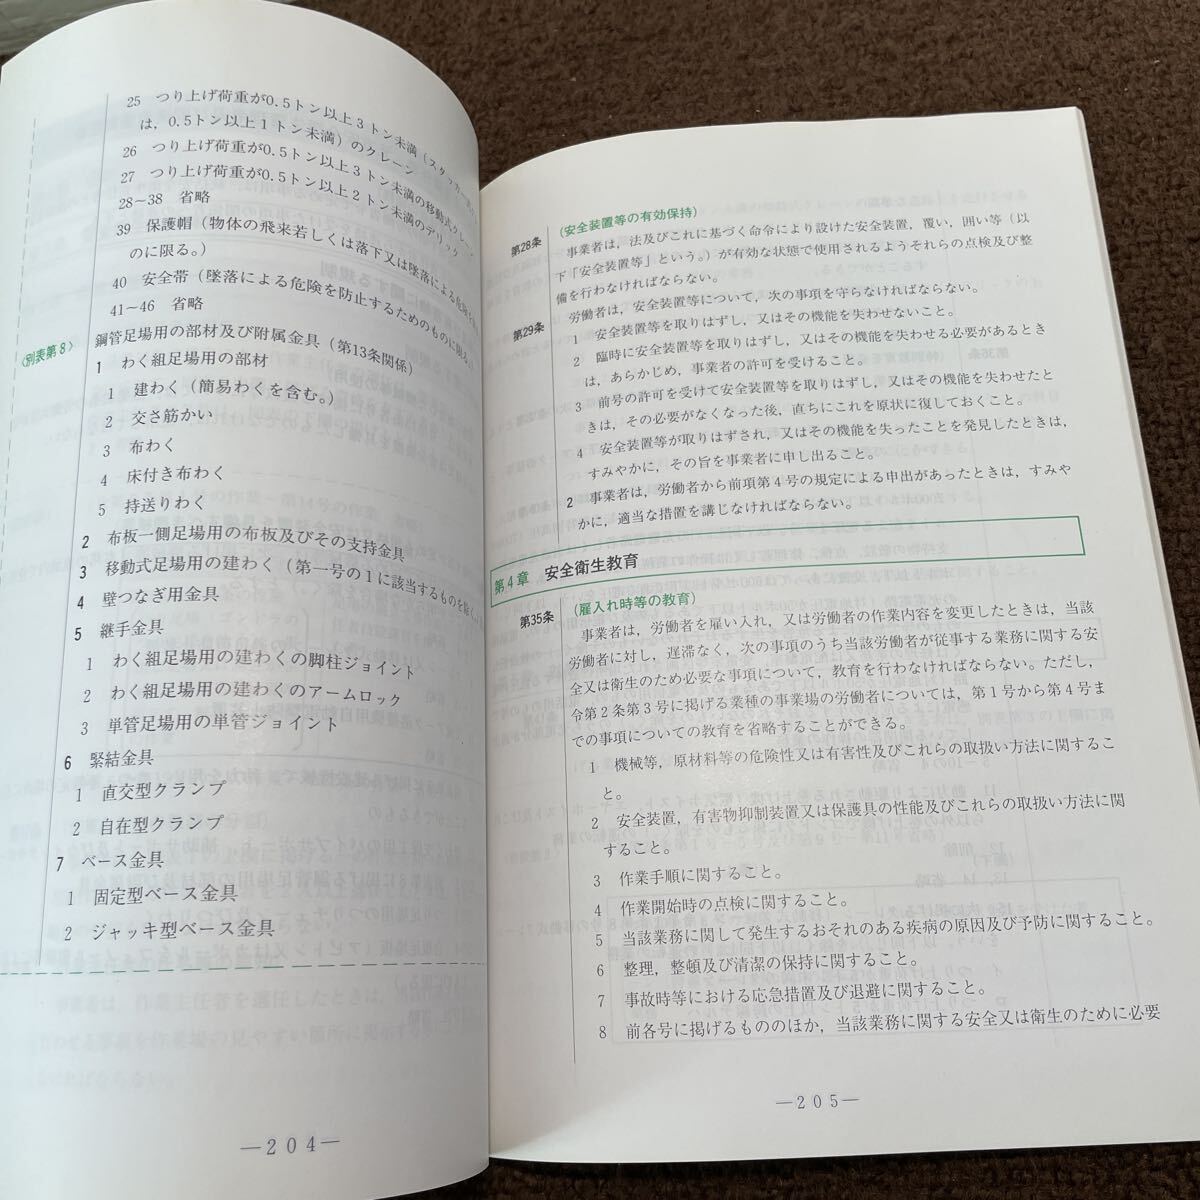 25 つり上げ荷重が0.5トン以上3トン未満(スタッカー
は，0.5トン以上1トン未満)のクレーン
26 つり上げ荷重が0.5トン以上3トン未満の移動式クレー
27 つり上げ荷重が0.5トン以上2トン未満のデリック
28〜38 省略
39 保護帽(物体の飛来若しくは落下又は墜落による危険
のに限る。)
40 安全帯(墜落による危険を防止するためのものに限る。
41〜46 省略
〈別表第8〉 鋼管足場用の部材及び附属金具(第13条関係)
1 わく組足場用の部材
1 建わく(簡易わくを含む。)
2 交さ筋かい
3 布わく
4 床付き布わく
5 持送りわく
2 布板一側足場用の布板及びその支持金具
3 移動式足場用の建わく(第一号の1に該当するものを除く
4 壁つなぎ用金具
5 継手金具
1 わく組足場用の建わくの脚柱ジョイント
2 わく組足場用の建わくのアームロック
3 単管足場用の単管ジョイント
6 緊結金具
1 直交型クランプ
2 自在型クランプ
7 ベース金具
1 固定型ベース金具
2 ジャッキ型ベース金具
—204—
(安全装置等の有効保持)
第28条 事業者は，法及びこれに基づく命令により設けた安全装置，覆い，囲い等(以
下「安全装置等」という。)が有効な状態で使用されるようそれらの点検及び整
備を行わなければならない。
第29条 労働者は，安全装置等について，次の事項を守らなければならない。
安全装置等を取りはずし，又はその機能を失わせないこと。
2 臨時に安全装置等を取りはずし，又はその機能を失わせる必要があるとき
は，あらかじめ，事業者の許可を受けること。
3 前号の許可を受けて安全装置等を取りはずし，又はその機能を失わせたと
きは，その必要がなくなった後，直ちにこれを原状に復しておくこと。
4 安全装置等が取りはずされ，又はその機能を失ったことを発見したときは，
すみやかに，その旨を事業者に申し出ること。
2 事業者は，労働者から前項第4号の規定による申出があったときは，すみや
かに，適当な措置を講じなければならない。
第4章 安全衛生教育
(雇入れ時等の教育)
第35条 事業者は，労働者を雇い入れ，又は労働者の作業内容を変更したときは，当該
労働者に対し，遅滞なく，次の事項のうち当該労働者が従事する業務に関する安
全又は衛生のため必要な事項について，教育を行わなければならない。ただし，
令第2条第3号に掲げる業種の事業場の労働者については，第1号から第4号ま
での事項についての教育を省略することができる。
1 機械等，原材料等の危険性又は有害性及びこれらの取扱い方法に関するこ
と。
2 安全装置，有害物抑制装置又は保護具の性能及びこれらの取扱い方法に関
すること。
3 作業手順に関すること。
4 作業開始時の点検に関すること。
5 当該業務に関して発生するおそれのある疾病の原因及び予防に関すること。
6 整理，整頓及び清潔の保持に関すること。
7 事故時等における応急措置及び退避に関すること。
8 前各号に掲げるもののほか，当該業務に関する安全又は衛生のために必要
—205—